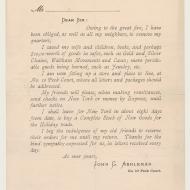 Mr.
DEAR SIR:
Owing to the great fire, I have
been obliged, as well as all my neighbors, to remove my
quarters.
I saved my wife and children, books, and perhaps
worth of goods in safe, such as Gold and Silver
Chains, Waltham Movements and Cases; more perishable
goods being burned, such as Jewelry, etc.
I am now fitting up a store and place to live, at
No. 10 Peck Court, where all letters and packages should be
addressed.
My friends will please, when making remittances,
send checks on New York or money by Express, until
further notice.
I shall leave for New York in about ten days
from date, to buy a Complete Stock of New Goods for
the Holiday trade.
I beg the indulgence of my old friends to reserve
their orders for me until my return. Thanks for the
kind sympathy expressed for us, in letters received every
day.
As ever yours,
JOHN G. ASHLEMAN
No. 10 Peck Court.